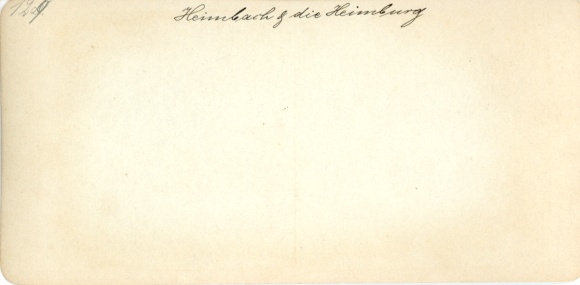 Heimbach & die Heimburg